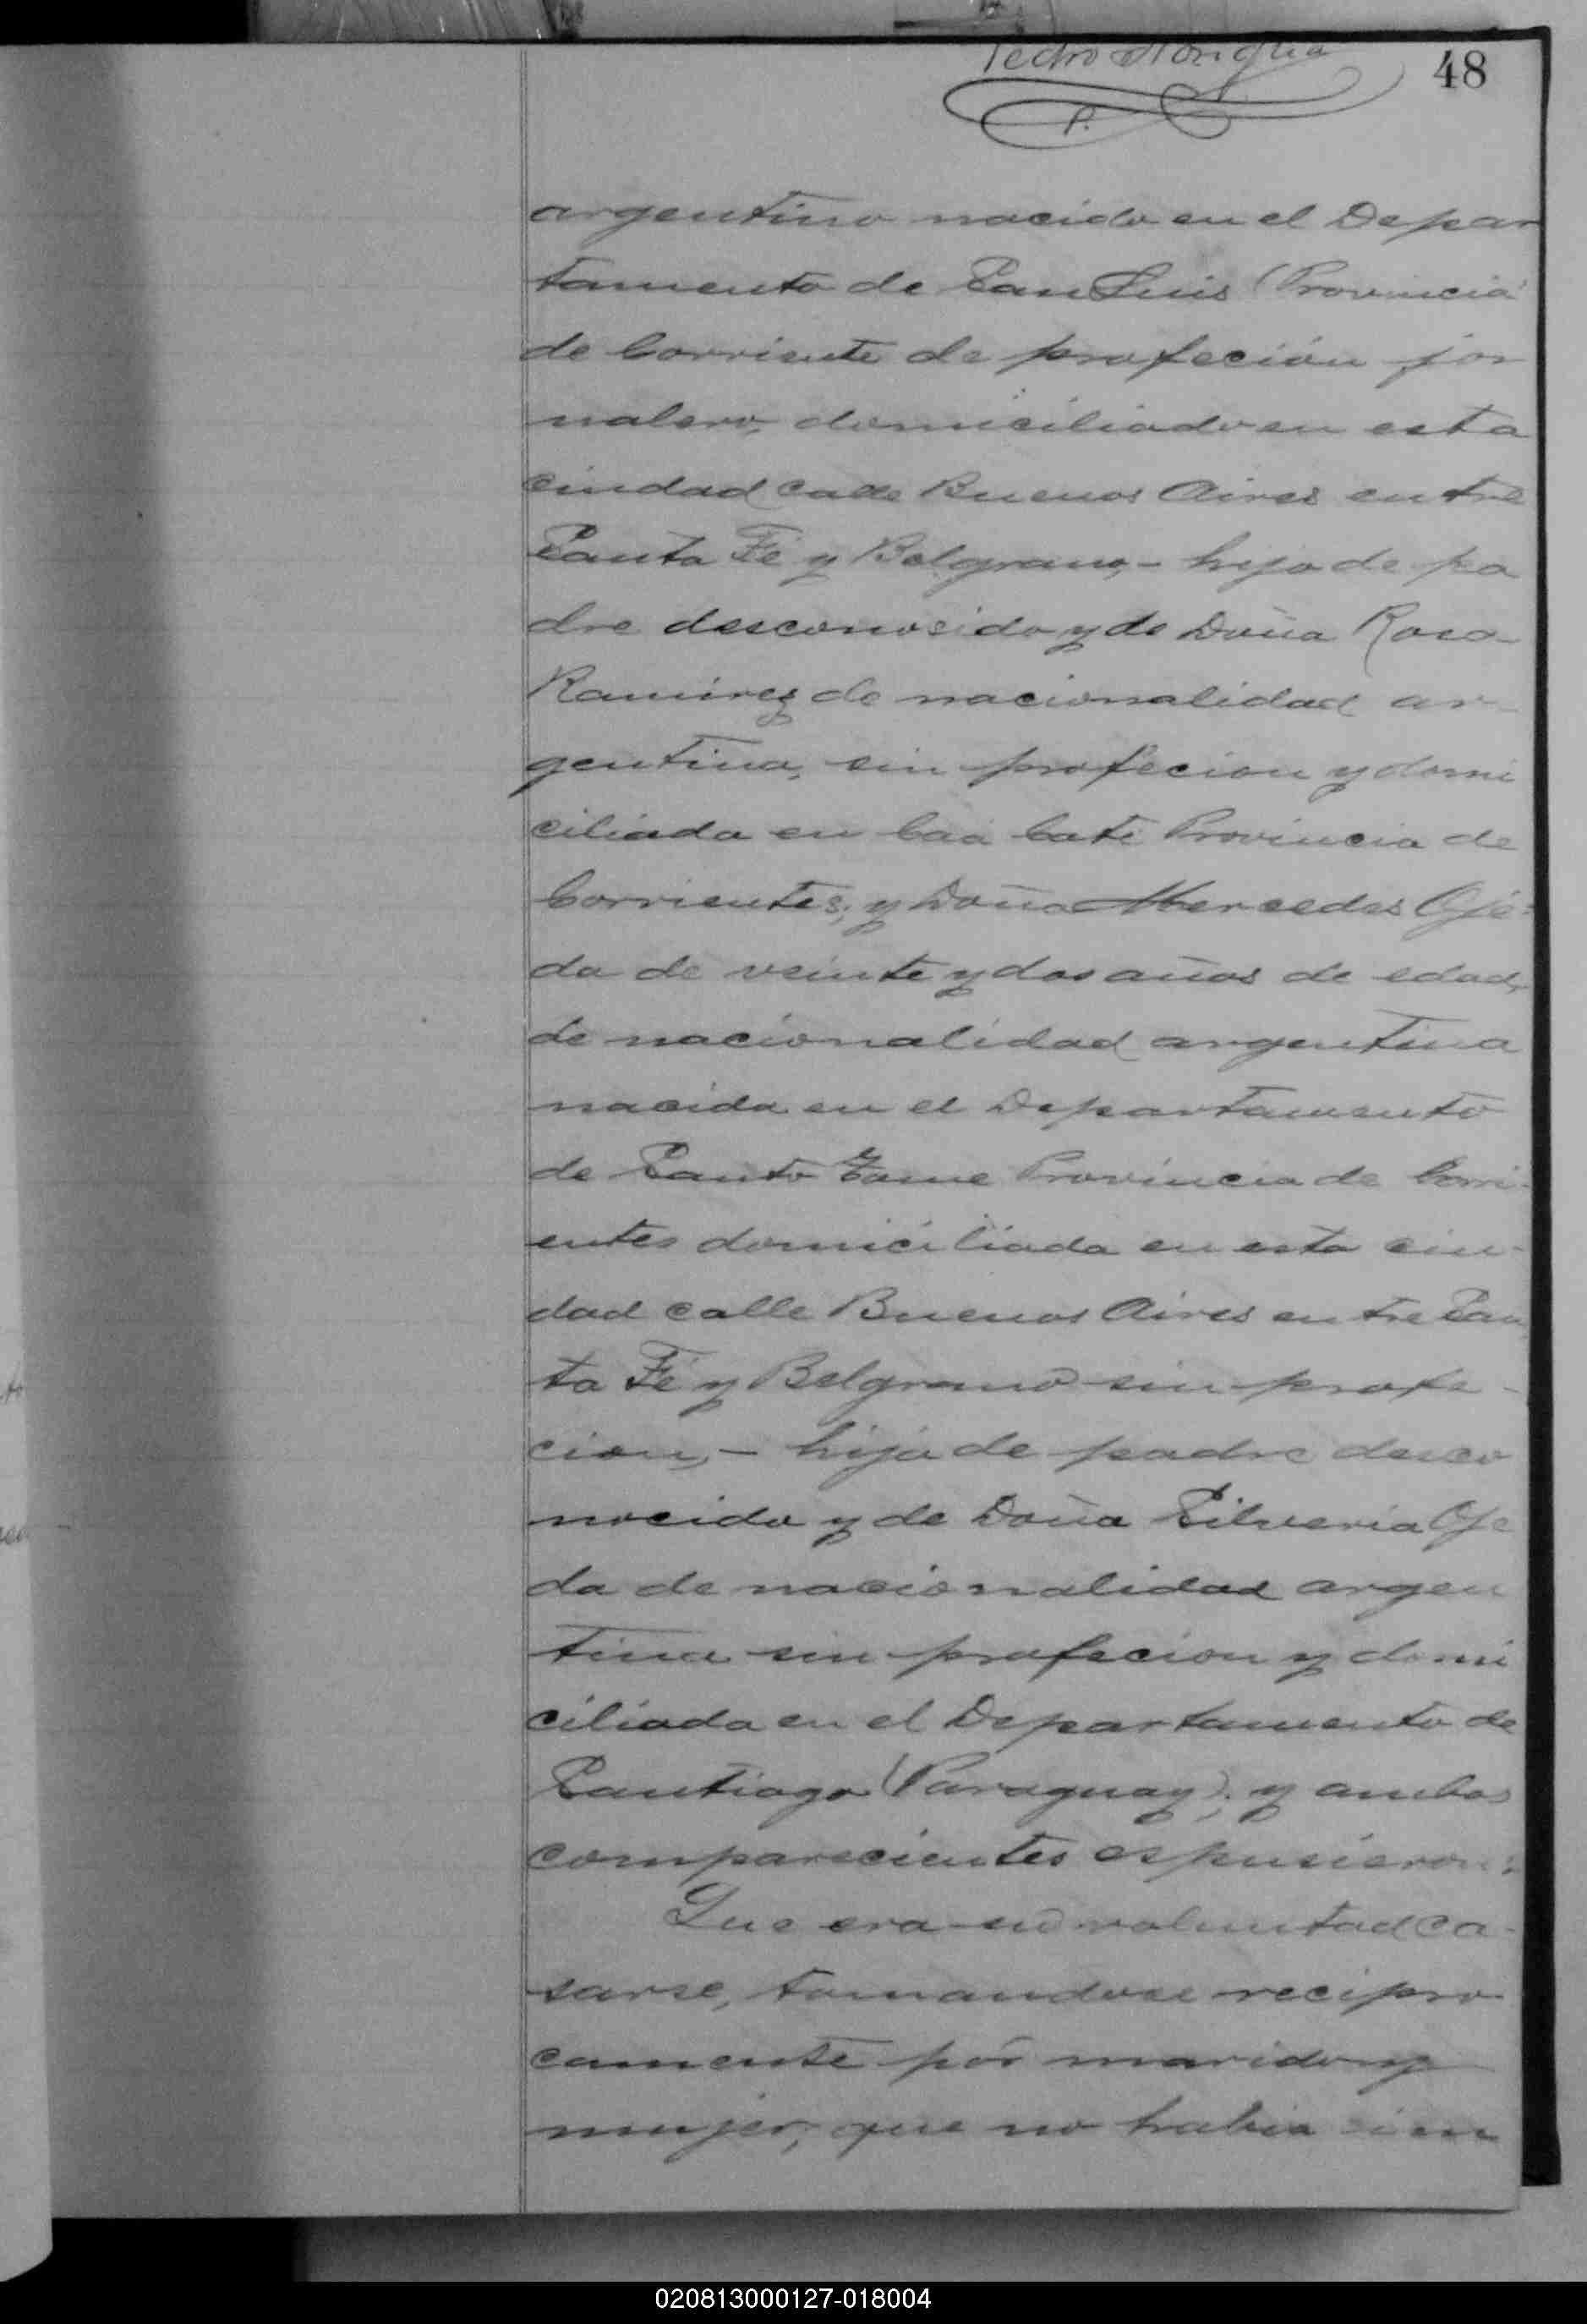 Pedro
48
P.
argentino nacido en el Depar
tamento de San Luis (Provincia
de Corriente de profeción jor
nalero, domiciliado en esta
ciudad calle Buenos Aires entre
Santa Fé y Belgrano,- hijo de pa
dre desconosido y de Doña Rosa
Ramirez de nacionalidad ar-
gentina, sin profecion y domi
ciliada en Caá Cati Provincia de
Corrientes; y Doña Mercedes Oje-
da de veinte y dos años de edad,
de nacionalidad argentina
nacida en el Departamento
de Santo Tome Provincia de Corri-
entes domiciliada en esta ciu-
dad calle Buenos Aires entre San
ta Fé y Belgrano sin profe-
cion,- hija de padre desco
nocido y de Doña Silveria Oje
da de nacionalidad argen
tina sin profecion y domi
ciliada en el Departamento de
Santiago (Paraguay); y ambos
comparecientes espusieron:
Que era su voluntad ca-
sarse, tomandose recipro-
camente por marido y
mujer; que no habia
020813000127-018004